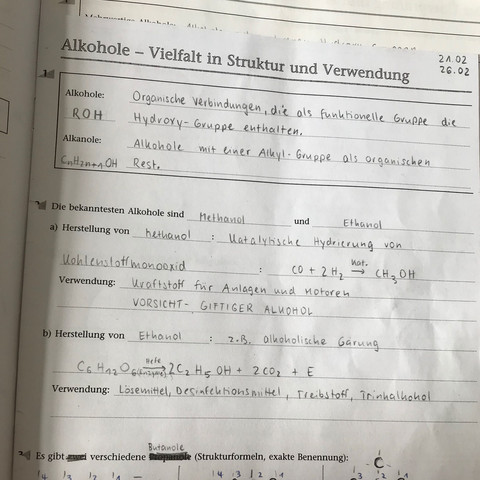 Alkohole – Vielfalt in Struktur und Verwendung
21.02
26.02
1 Alkohole: Organische Verbindungen, die als funktionelle Gruppe die
ROH Hydroxy-Gruppe enthalten.
Alkanole: Alkohole mit einer Alkyl-Gruppe als organischen
CnH2n+1OH Rest.
2 Die bekanntesten Alkohole sind Methanol und Ethanol
a) Herstellung von Methanol : Katalytische Hydrierung von
Kohlenstoffmonooxid : CO + 2 H2 →kat. CH3OH
Verwendung: Kraftstoff für Anlagen und Motoren
VORSICHT- GIFTIGER ALKOHOL
b) Herstellung von Ethanol : z.B. alkoholische Gärung
C6H12O6 →Hefe (Enzyme) 2C2H5OH + 2CO2 + E
Verwendung: Lösemittel, Desinfektionsmittel, Treibstoff, Trinkalkohol
Butanole
3 Es gibt zwei verschiedene Propanole (Strukturformeln, exakte Benennung):
C
4 3 2 1 4 3 2 1 3 2 1